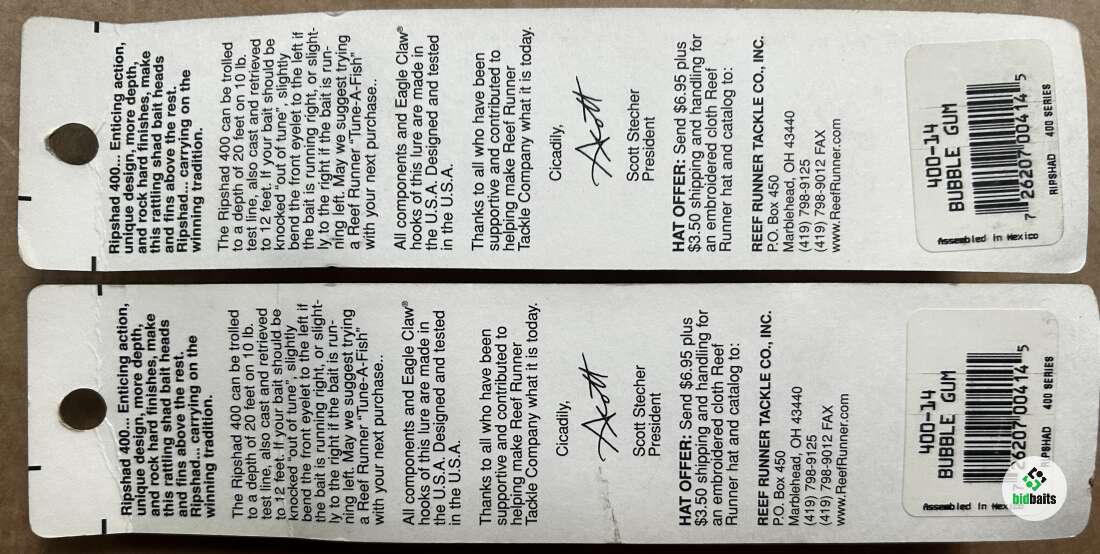 Ripshad 400... Enticing action,
unique design, more depth,
and rock hard finishes, make
this rattling shad bait heads
and fins above the rest.
Ripshad... carrying on the
winning tradition.
The Ripshad 400 can be trolled
to a depth of 20 feet on 10 lb.
test line, also cast and retrieved
to 12 feet. If your bait should be
knocked "out of tune", slightly
bend the front eyelet to the left if
the bait is running right, or slight-
ly to the right if the bait is run-
ning left. May we suggest trying
a Reef Runner "Tune-A-Fish"
with your next purchase..
All components and Eagle Claw®
hooks of this lure are made in
the U.S.A. Designed and tested
in the U.S.A.
Thanks to all who have been
supportive and contributed to
helping make Reef Runner
Tackle Company what it is today.
Cicadily,
Scott
Scott Stecher
President
HAT OFFER: Send $6.95 plus
$3.50 shipping and handling for
an embroidered cloth Reef
Runner hat and catalog to:
REEF RUNNER TACKLE CO., INC.
P.O. Box 450
Marblehead, OH 43440
(419) 798-9125
(419) 798-9012 FAX
www.ReefRunner.com
400-14
BUBBLE GUM
7 26207 00414 5
RIPSHAD 400 SERIES
Assembled in Mexico
Ripshad 400... Enticing action,
unique design, more depth,
and rock hard finishes, make
this rattling shad bait heads
and fins above the rest.
Ripshad... carrying on the
winning tradition.
The Ripshad 400 can be trolled
to a depth of 20 feet on 10 lb.
test line, also cast and retrieved
to 12 feet. If your bait should be
knocked "out of tune", slightly
bend the front eyelet to the left if
the bait is running right, or slight-
ly to the right if the bait is run-
ning left. May we suggest trying
a Reef Runner "Tune-A-Fish"
with your next purchase..
All components and Eagle Claw®
hooks of this lure are made in
the U.S.A. Designed and tested
in the U.S.A.
Thanks to all who have been
supportive and contributed to
helping make Reef Runner
Tackle Company what it is today.
Cicadily,
Scott
Scott Stecher
President
HAT OFFER: Send $6.95 plus
$3.50 shipping and handling for
an embroidered cloth Reef
Runner hat and catalog to:
REEF RUNNER TACKLE CO., INC.
P.O. Box 450
Marblehead, OH 43440
(419) 798-9125
(419) 798-9012 FAX
www.ReefRunner.com
400-14
BUBBLE GUM
26207 00414 5
RIPSHAD 400 SERIES
Assembled in Mex
bidbaits